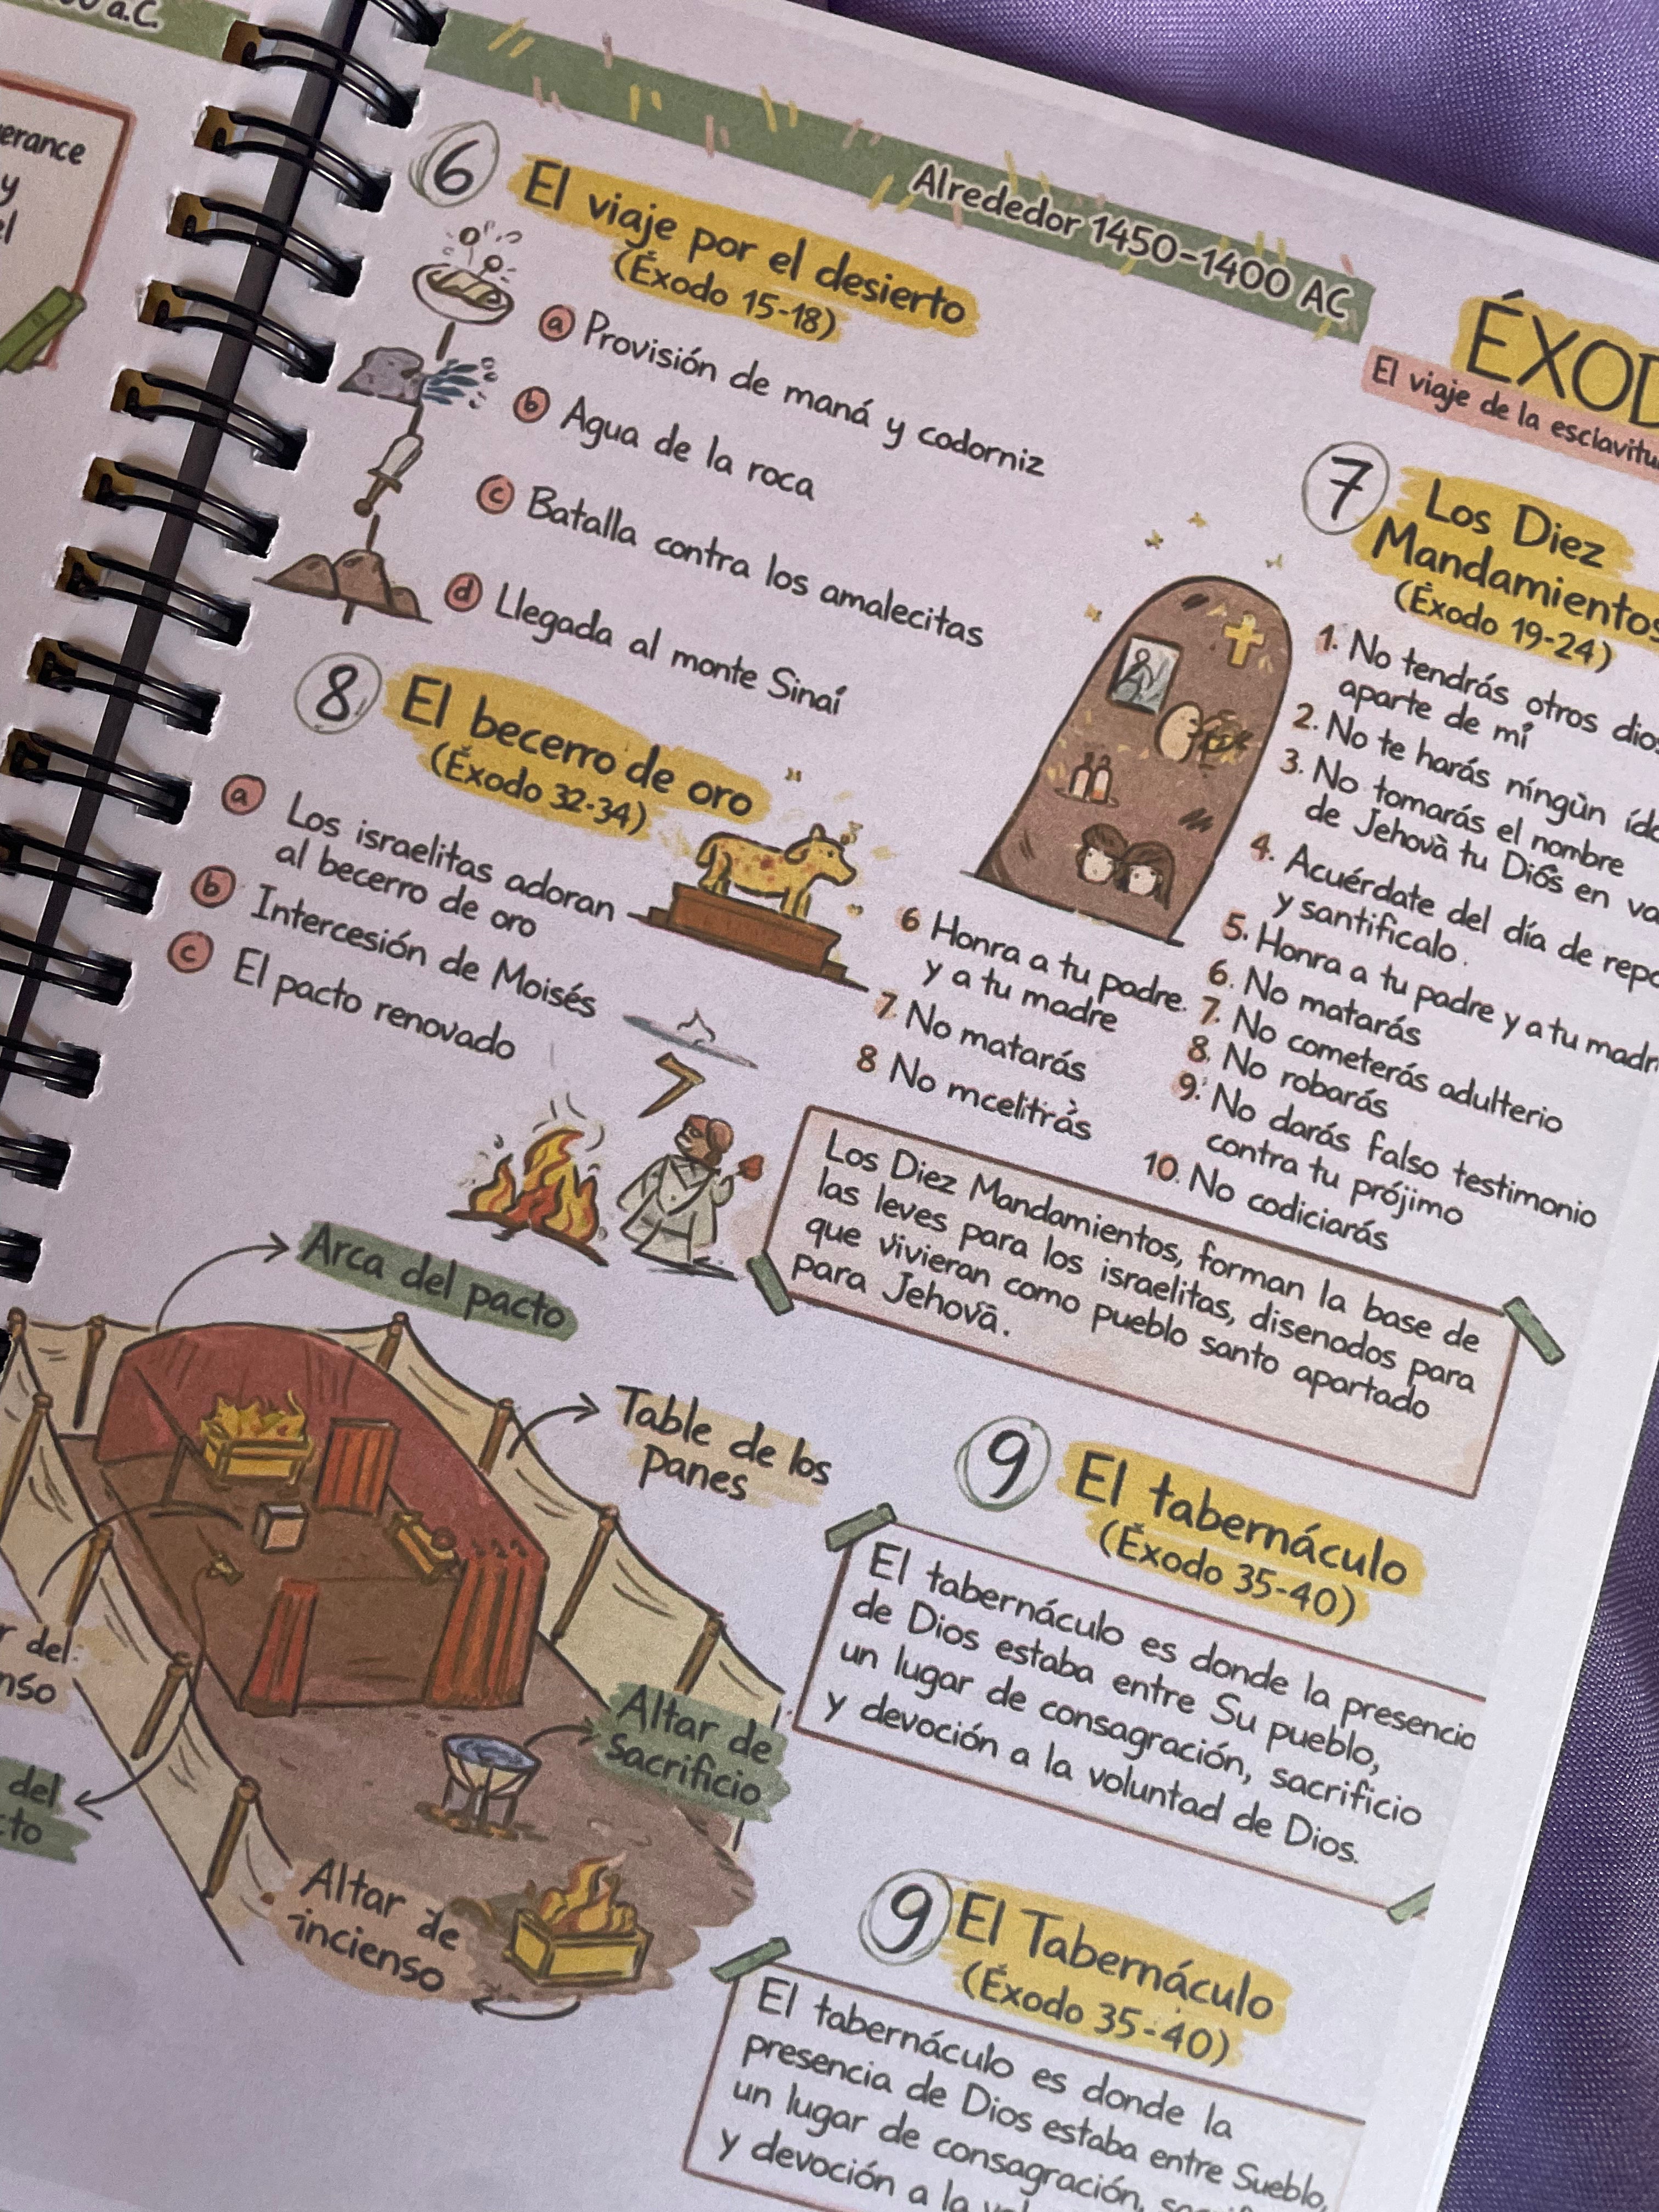 a.C.
y
Alrededor 1450-1400 AC
6 El viaje por el desierto
(Éxodo 15-18)
a Provisión de maná y codorniz
b Agua de la roca
c Batalla contra los amalecitas
d Llegada al monte Sinaí
8 El becerro de oro
(Éxodo 32-34)
a Los israelitas adoran
al becerro de oro
b Intercesión de Moisés
c El pacto renovado
El viaje de la
7 Los Diez
Mandamientos
(Éxodo 19-24)
1. No tendrás otros
aparte de mí
2. No te harás níngùn
3. No tomarás el nombre
de Jehovà tu Diós en
4. Acuérdate del día de
y santificalo.
5. Honra a tu padre y a tu
6. No matarás
7. No cometerás adulterio
8. No robarás
9. No darás falso testimonio
contra tu prójimo
10. No codiciarás
6 Honra a tu padre.
y a tu madre
7. No matarás
8 No mcelitràs
Los Diez Mandamientos, forman la base de
las leves para los israelitas, disenodos para
que vivieran como pueblo santo apartado
para Jehovā.
Arca del pacto
Table de los
panes
Altar de
sacrificio
Altar de
incienso
del
del
9 El tabernáculo
(Éxodo 35-40)
El tabernáculo es donde la presencia
de Dios estaba entre Su pueblo,
un lugar de consagración, sacrificio
y devoción a la voluntad de Dios.
9 El Tabernáculo
(Éxodo 35-40)
El tabernáculo es donde la
presencia de Dios estaba entre Sueblo,
un lugar de consagración,
y devoción a la